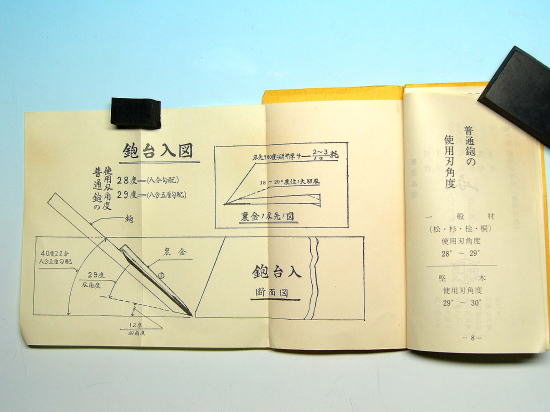 鉋台入図
普通鉋の
使用刃角度
28度―(八分勾配)
29度―(八分五厘勾配)
鉋
裏金
40度22分
八分五厘勾配
29度
刃角度
12度
2~3
裏金ノ刃先ノ図
鉋台入
断面図
普通鉋の
使用刃角度
一般材
(松・杉・桧・桐)
使用刃角度
28° - 29°
堅木
使用刃角度
29° - 30°
- 8 -